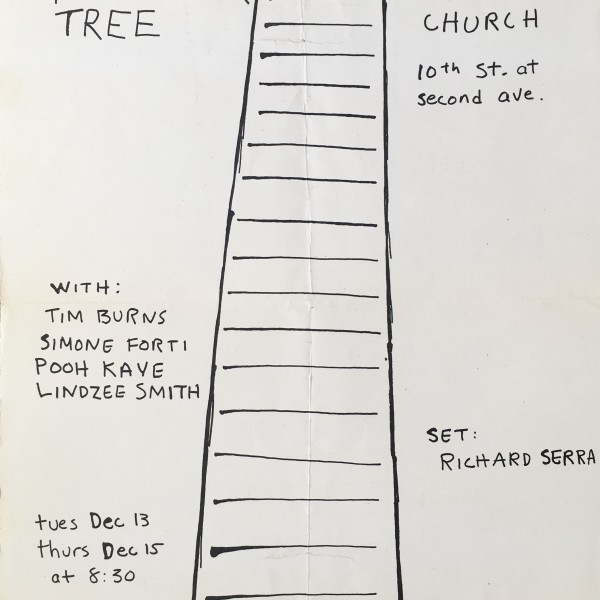 TREE
CHURCH
10th St. at
second ave.
WITH:
TIM BURNS
SIMONE FORTI
POOH KAYE
LINDZEE SMITH
SET:
RICHARD SERRA
tues Dec 13
thurs Dec 15
at 8:30